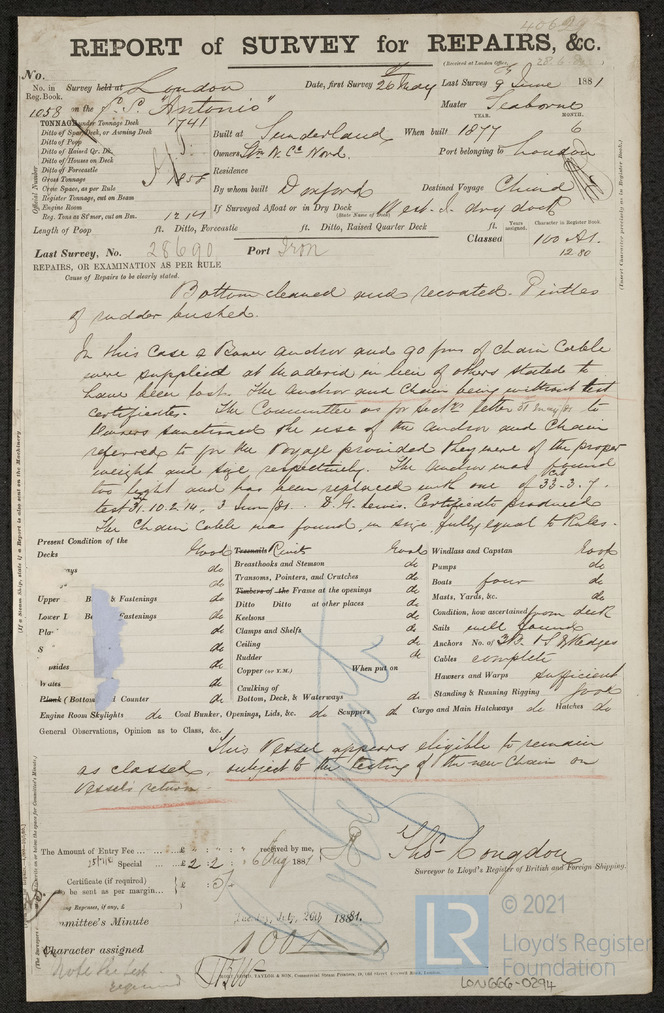 REPORT of SURVEY for REPAIRS, &c.
(Received at London Office,
No.
No. in Reg. Book. Survey held at London Date, first Survey 26 May Last Survey 9 June 1881
1058 on the S.S. "Antonio" Master Seaborne
TONNAGE under Tonnage Deck 1741
Ditto of Spar Deck, or Awning Deck
Ditto of Poop
Ditto of Raised Qr. Dk.
Ditto of Houses on Deck
Ditto of Forecastle
Gross Tonnage
Crew Space, as per Rule
Register Tonnage, cut on Beam
Engine Room
Reg. Tons as Str mer, cut on Bm.
Official Number
YEAR. MONTH.
Built at Sunderland When built 1877 6
Owners Port belonging to London
Residence
By whom built Doxford Destined Voyage China
If Surveyed Afloat or in Dry Dock West. I. dry dock
(State Name of Dock)
Length of Poop ft. Ditto, Forecastle ft. Ditto, Raised Quarter Deck ft.
Years assigned. Character in Register Book.
Classed 100 A1.
12.80
Last Survey, No. 28690 Port Iron
REPAIRS, OR EXAMINATION AS PER RULE
Cause of Repairs to be clearly stated.
Bottom cleaned and recoated. Pintles
of rudder bushed.
In this case a Bower anchor and 90 fms of Chain Cable
were supplied at in lieu of others stated to
have been lost. The anchor and Chain being without test
certificates. The Committee as per letter to
Owners sanctioned the use of the anchor and Chain
referred to for the Voyage provided they were of the proper
weight and size respectively. The anchor was found
too light and has been replaced with one of 33.3.7.
test 31.10.2.14, 3 June 81. D. G. Lewis. Certificate produced
The Chain Cable was found in size fully equal to Rules.
Present Condition of the
Decks Good
Upper & Fastenings do
Lower & Fastenings do
Plank (Bottom Counter do
Treenails Rivets Good
Breasthooks and Stemson do
Transoms, Pointers, and Crutches do
Timbers of the Frame at the openings do
Ditto Ditto at other places do
Keelsons do
Clamps and Shelfs do
Ceiling do
Rudder do
Copper (or Y.M.) When put on
Caulking of
Bottom, Deck, & Waterways do
Windlass and Capstan Good
Pumps do
Boats four do
Masts, Yards, &c. do
Condition, how ascertained from deck
Sails well found
Anchors No. of 3B. 1S. & Kedges
Cables complete
Hawsers and Warps sufficient
Standing & Running Rigging good
Engine Room Skylights do Coal Bunker, Openings, Lids, &c. do Scuppers do Cargo and Main Hatchways do Hatches do
General Observations, Opinion as to Class, &c.
This Vessel appears eligible to remain
as classed, subject to the testing of the new Chain on
Vessels return
The Amount of Entry Fee ... £ : : received by me,
Special ... £ 2 : 2 : 6 Aug 1881
Certificate (if required)
to be sent as per margin...
Thos Congdon
Surveyor to Lloyd's Register of British and Foreign Shipping.
mmittee's Minute Tuesday, July, 26th 1881.
Character assigned 100A1
Note the test required
© 2021
LR
Lloyd's Register
Foundation
LON666-0294